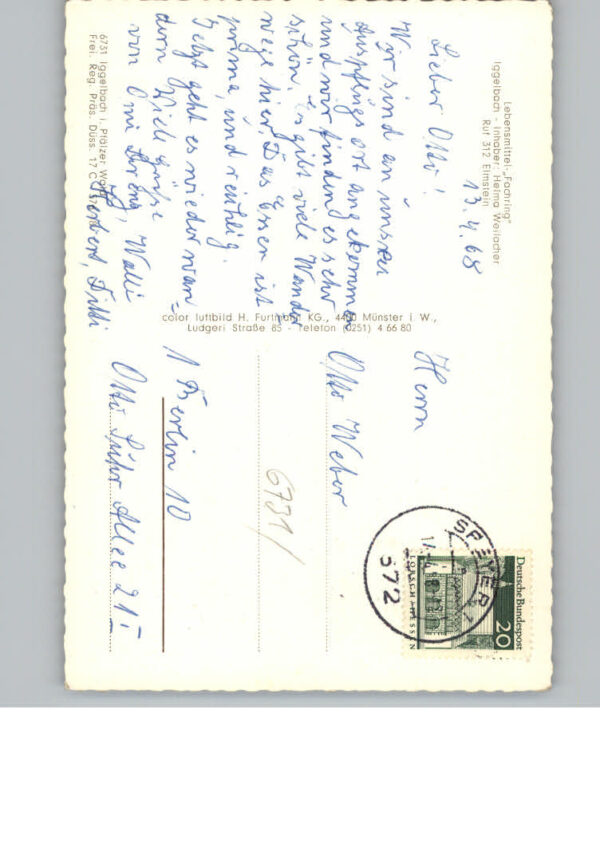 Lebensmittel-„Fachring"
Iggelbach - Inhaber: Helma Weilacher
Ruf 312 Elmstein
13.4.68
Lieber Otto!
Wir sind an unsren
Ausflugsort angekommen
und wir finden es sehr
schön. Es gibt viele Wander
wege hier. Das Essen ist
prima, und ruhig.
Jetzt geht es wieder wan=
dern. Viele Grüße
von Omi Walli
Herbert,
6731 Iggelbach i. Pfälzer Wald
Frei. Reg. Präs. Düss. 17 C
color luftbild H. Furtmann KG., 4400 Münster i. W.,
Ludgeri Straße 85 - Telefon (0251) 4 66 80
Herrn
Otto Weber
6731/
1 Berlin 10
Otto Suhr Allee 21 I
Deutsche Bundespost
20
LORSCH/HESSEN
SPEYER 1
672